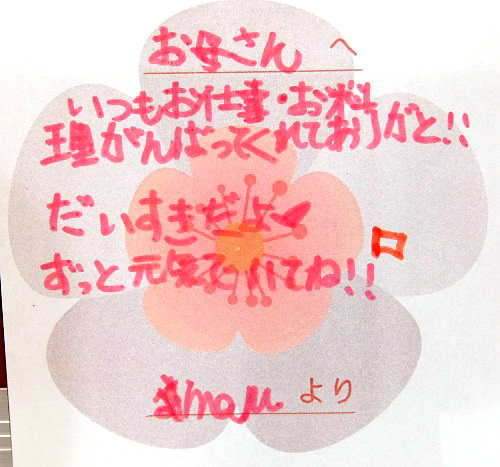 お母さん へ
いつもお仕事・お料
理がんばってくれておりがと!!
だいすぎだよー
ずっと元気でいてね!!
より